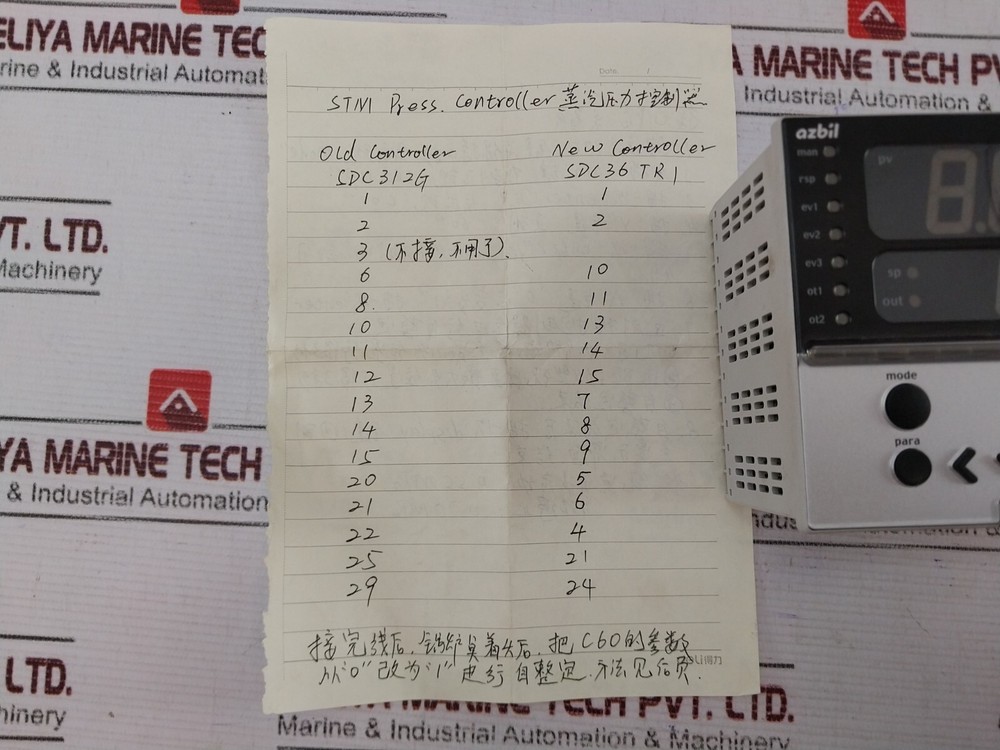 ELIYA MARINE TEC
rine & Industrial Automat
A MARINE TECH PV
Industrial Automation &
Date /
STM Press. Controller 蒸汽压力控制器
Old Controller New Controller
SDC312G SDC36 TR1
1 1
2 2
3 (不接,不用了).
6 10
8. 11
10 13
11 14
12 15
13 7
14 8
15 9
20 5
21 6
22 4
25 21
29 24
接完线后,锅炉负着火后,把C60的参数
从"0"改为"1"进行自整定.方法见后页.
Li得力
azbil
man
rsp
ev1
ev2
ev3
ot1
ot2
pv
8.
sp
out
mode
para
VT. LTD.
Machinery
YA MARINE TECH
& Industrial Automation
LTD.
hinery
MARINE TECH PVT. LTD.
Marine & Industrial Automation & Machinery